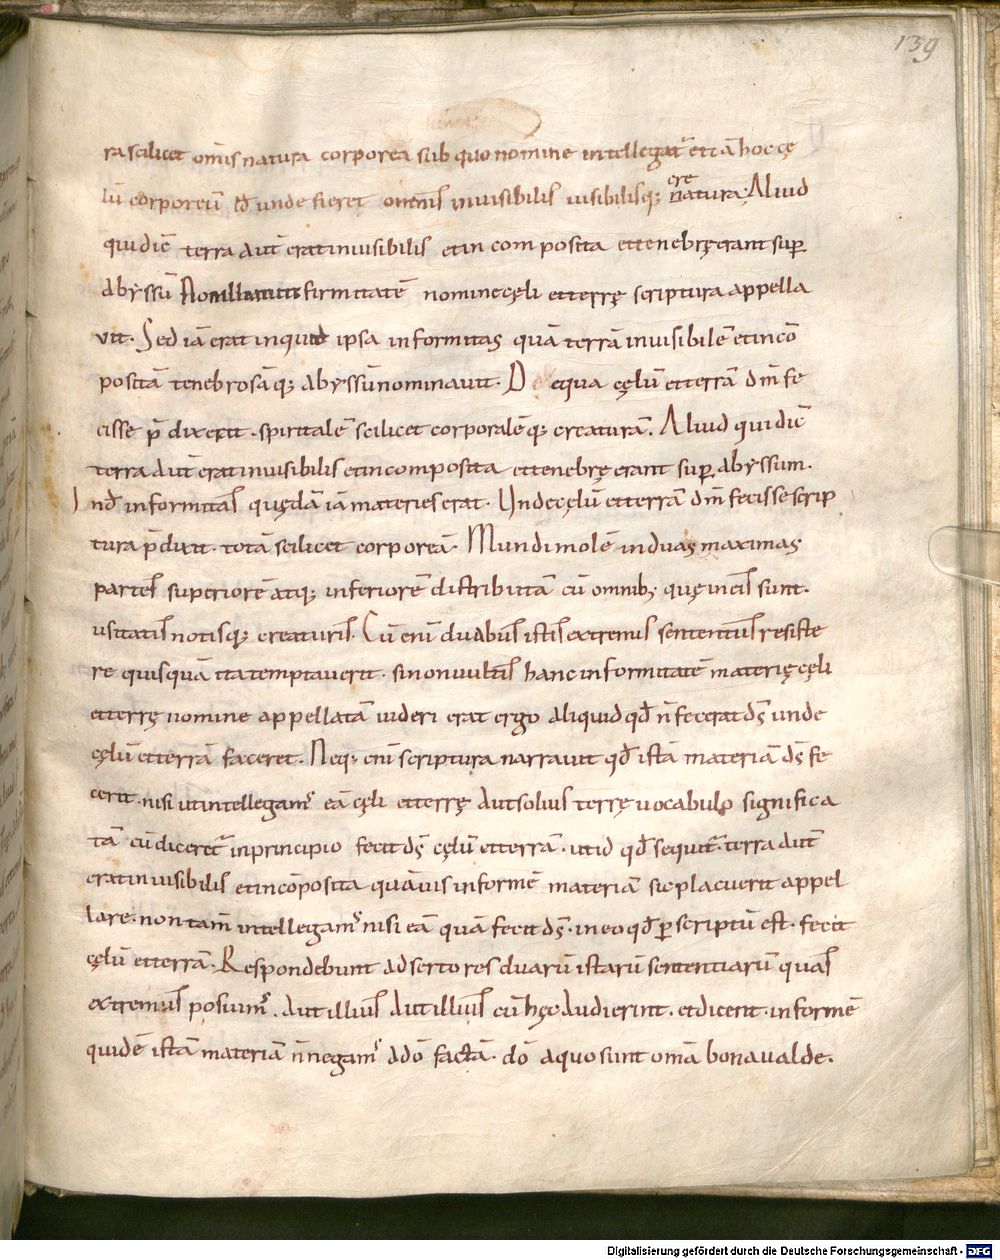 139
ra scilicet om̄is natura corporea sub quo nomine intellegat᷑ et iā hoc cę
lū corporeū qđ unde fieret omnis inuisibilis uisibilisq; creatura. Aliud
qui diē terra aut̄ erat inuisibilis et incomposita et tenebrę erant sup̱
abyssū firmitatē nomine cęli et terrę scriptura appella
uit. Sed iā erat inquid ipsa informitas quā terrā inuisibilē et incō
positā tenebrosāq; abyssū nominauit. D equa cęlū et terrā dm̄ fe
cisse p̄dixerit. spiritalē scilicet corporalēq; creaturā. Aliud qui diē
terra aut̄ erat inuisibilis et incomposita et tenebrę erant sup̱ abyssum.
Ind̄ informitas quędā iā materies erat. Unde cęlū et terrā dm̄ fecisse scrip
tura p̄dixit. totā scilicet corporeā. Mundi molē in duas maximas
partes superiorē atq; inferiorē distributtā cū omnib; quę in eis sunt.
usitatis notisq; creaturis. Cū enī duabus istis extremis sententiis resiste
re quisquā ita temptauerit. si non uultis hanc informitatē materię cęli
et terrę nomine appellatā uideri erat ergo aliquid qđ n̄ fecerat ds̄ unde
cęlū et terrā faceret. Neq; enī scriptura narrauit qđ istā materiā ds̄ fe
cerit. nisi ut intellegam᷒ eā cęli et terrę aut solius terrę uocabulo significa
tā cū diceret᷑ in principio fecit ds̄ cęlū et terrā. ut id qđ sequit᷑. terra aut̄
erat inuisibilis et incōposita quāuis informē materiā sic placuerit appel
lare. non tam̄ intellegam᷒ nisi eā quā fecit ds̄. in eo qđ p̱scriptū est. fecit
cęlū et terrā. Respondebunt adsertores duarū istarū sententiarū quas
extremas posuim᷒. aut illius aut illius cū hęc audierint. et dicent. informē
quidē istā materiā n̄ negam᷒ a dō factā. dō a quo sunt omā bona ualde.
Digitalisierung gefördert durch die Deutsche Forschungsgemeinschaft - DFG